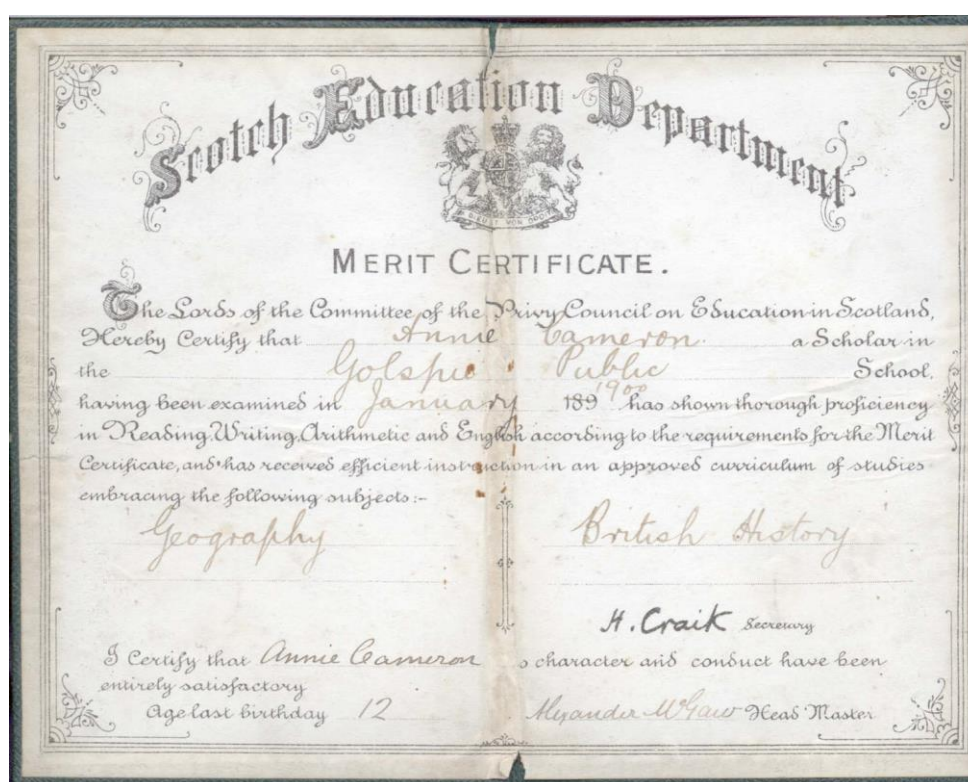 Scotch Education Department
DIEU ET MON DROIT
MERIT CERTIFICATE.
The Lords of the Committee of the Privy Council on Education in Scotland,
Hereby Certify that Annie Cameron a Scholar in
the Golspie Public School,
having been examined in January 189 1900 has shown thorough proficiency
in Reading, Writing, Arithmetic and English according to the requirements for the Merit
Certificate, and has received efficient instruction in an approved curriculum of studies
embracing the following subjects:-
Geography British History
H. Craik Secretary
I Certify that Annie Cameron s character and conduct have been
entirely satisfactory
Age last birthday 12 Alexander McGaw Head Master